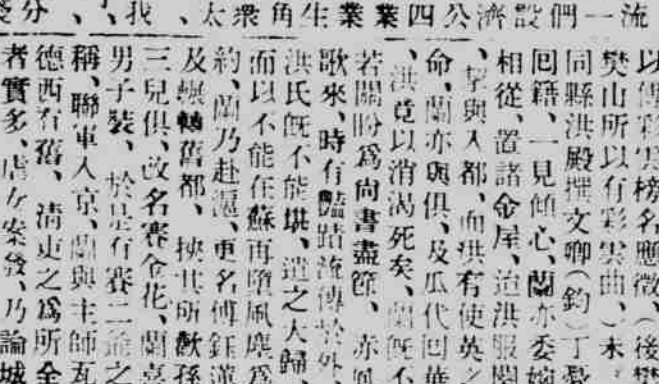 流一們設濟公四業業生角衆太、我、
以傅彩雲榜名應徵、（後樊
樊山所以有彩雲曲、）未
同縣洪殿撰文卿（鈞）丁
囘籍、一見傾心、蘭亦委
相從、置諸金屋、迨洪服
、挈與入都、而洪有使英之
命、蘭亦與俱、及瓜代回華
、洪竟以消渴死矣、蘭旣不
若關盼爲尙書盡節、亦
歌來、時有豔蹟流傳於外、
洪氏旣不能堪、遣之大歸、
而以不能在蘇再墮風塵爲
約、蘭乃赴滬、更名傅鈺蓮
及輾轉舊都、挾其所歡孫
三兒俱、改名賽金花、蘭喜
男子裝、於是有賽二爺之
稱、聯軍入京、蘭與主帥瓦
德西有舊、淸吏之爲所全
者實多、虐女案發、乃論城